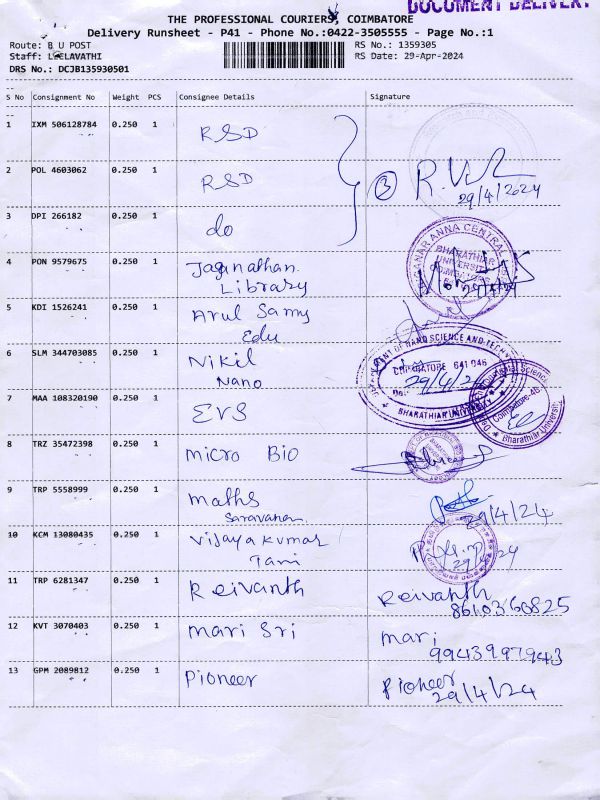 DOCUMENT DELIVERY
THE PROFESSIONAL COURIERS, COIMBATORE
Delivery Runsheet - P41 - Phone No.:0422-3505555 - Page No.:1
Route: B U POST
Staff: LEELAVATHI
DRS No.: DCJB135930501
RS No.: 1359305
RS Date: 29-Apr-2024
S No Consignment No Weight PCS Consignee Details Signature
1 IXM 506128784 0.250 1 RSD
2 POL 4603062 0.250 1 RSD 3 29/4/2024
3 DPI 266182 0.250 1 do
4 PON 9579675 0.250 1 Jaganathan
Library
ANNA CENTRAL
BHARATHIAR
UNIVERSITY
5 KDI 1526241 0.250 1 Arul Samy
Edu
6 SLM 344703085 0.250 1 Nikil
Nano
SCIENCE AND
COIMBATORE 641 046
29/4/24
BHARATHIAR UNIVERSITY
7 MAA 108320190 0.250 1 EVS
Science
Coimbatore-46
Bharathiar University
8 TRZ 35472398 0.250 1 Micro Bio
9 TRP 5558999 0.250 1 Maths
Saravanan
29/4/24
10 KCM 13080435 0.250 1 Vijayakumar
Tami
29/4/24
11 TRP 6281347 0.250 1 Reivanth Reivanth
8610360825
12 KVT 3070403 0.250 1 Mari Sri Mari
9943997943
13 GPM 2089812 0.250 1 Pioneer Pioneer
29/4/24